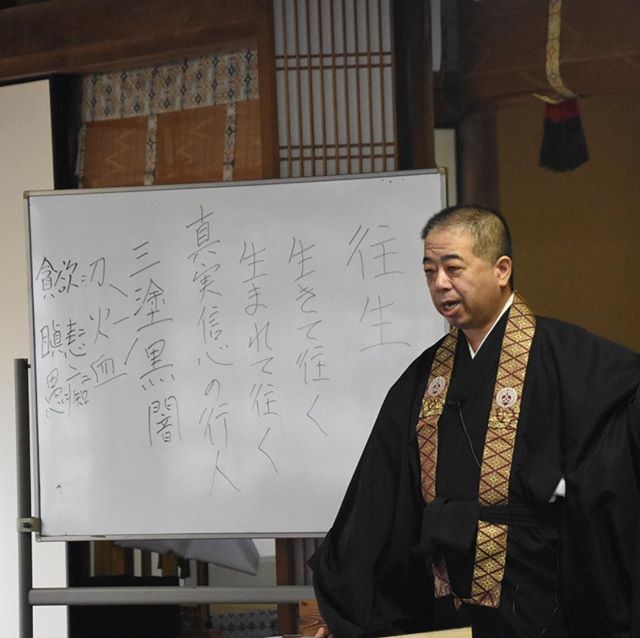 往生
生きて往く
生まれて往く
真実信心の行人
三塗黒闇
刀火血
貪欲
瞋恚
愚痴